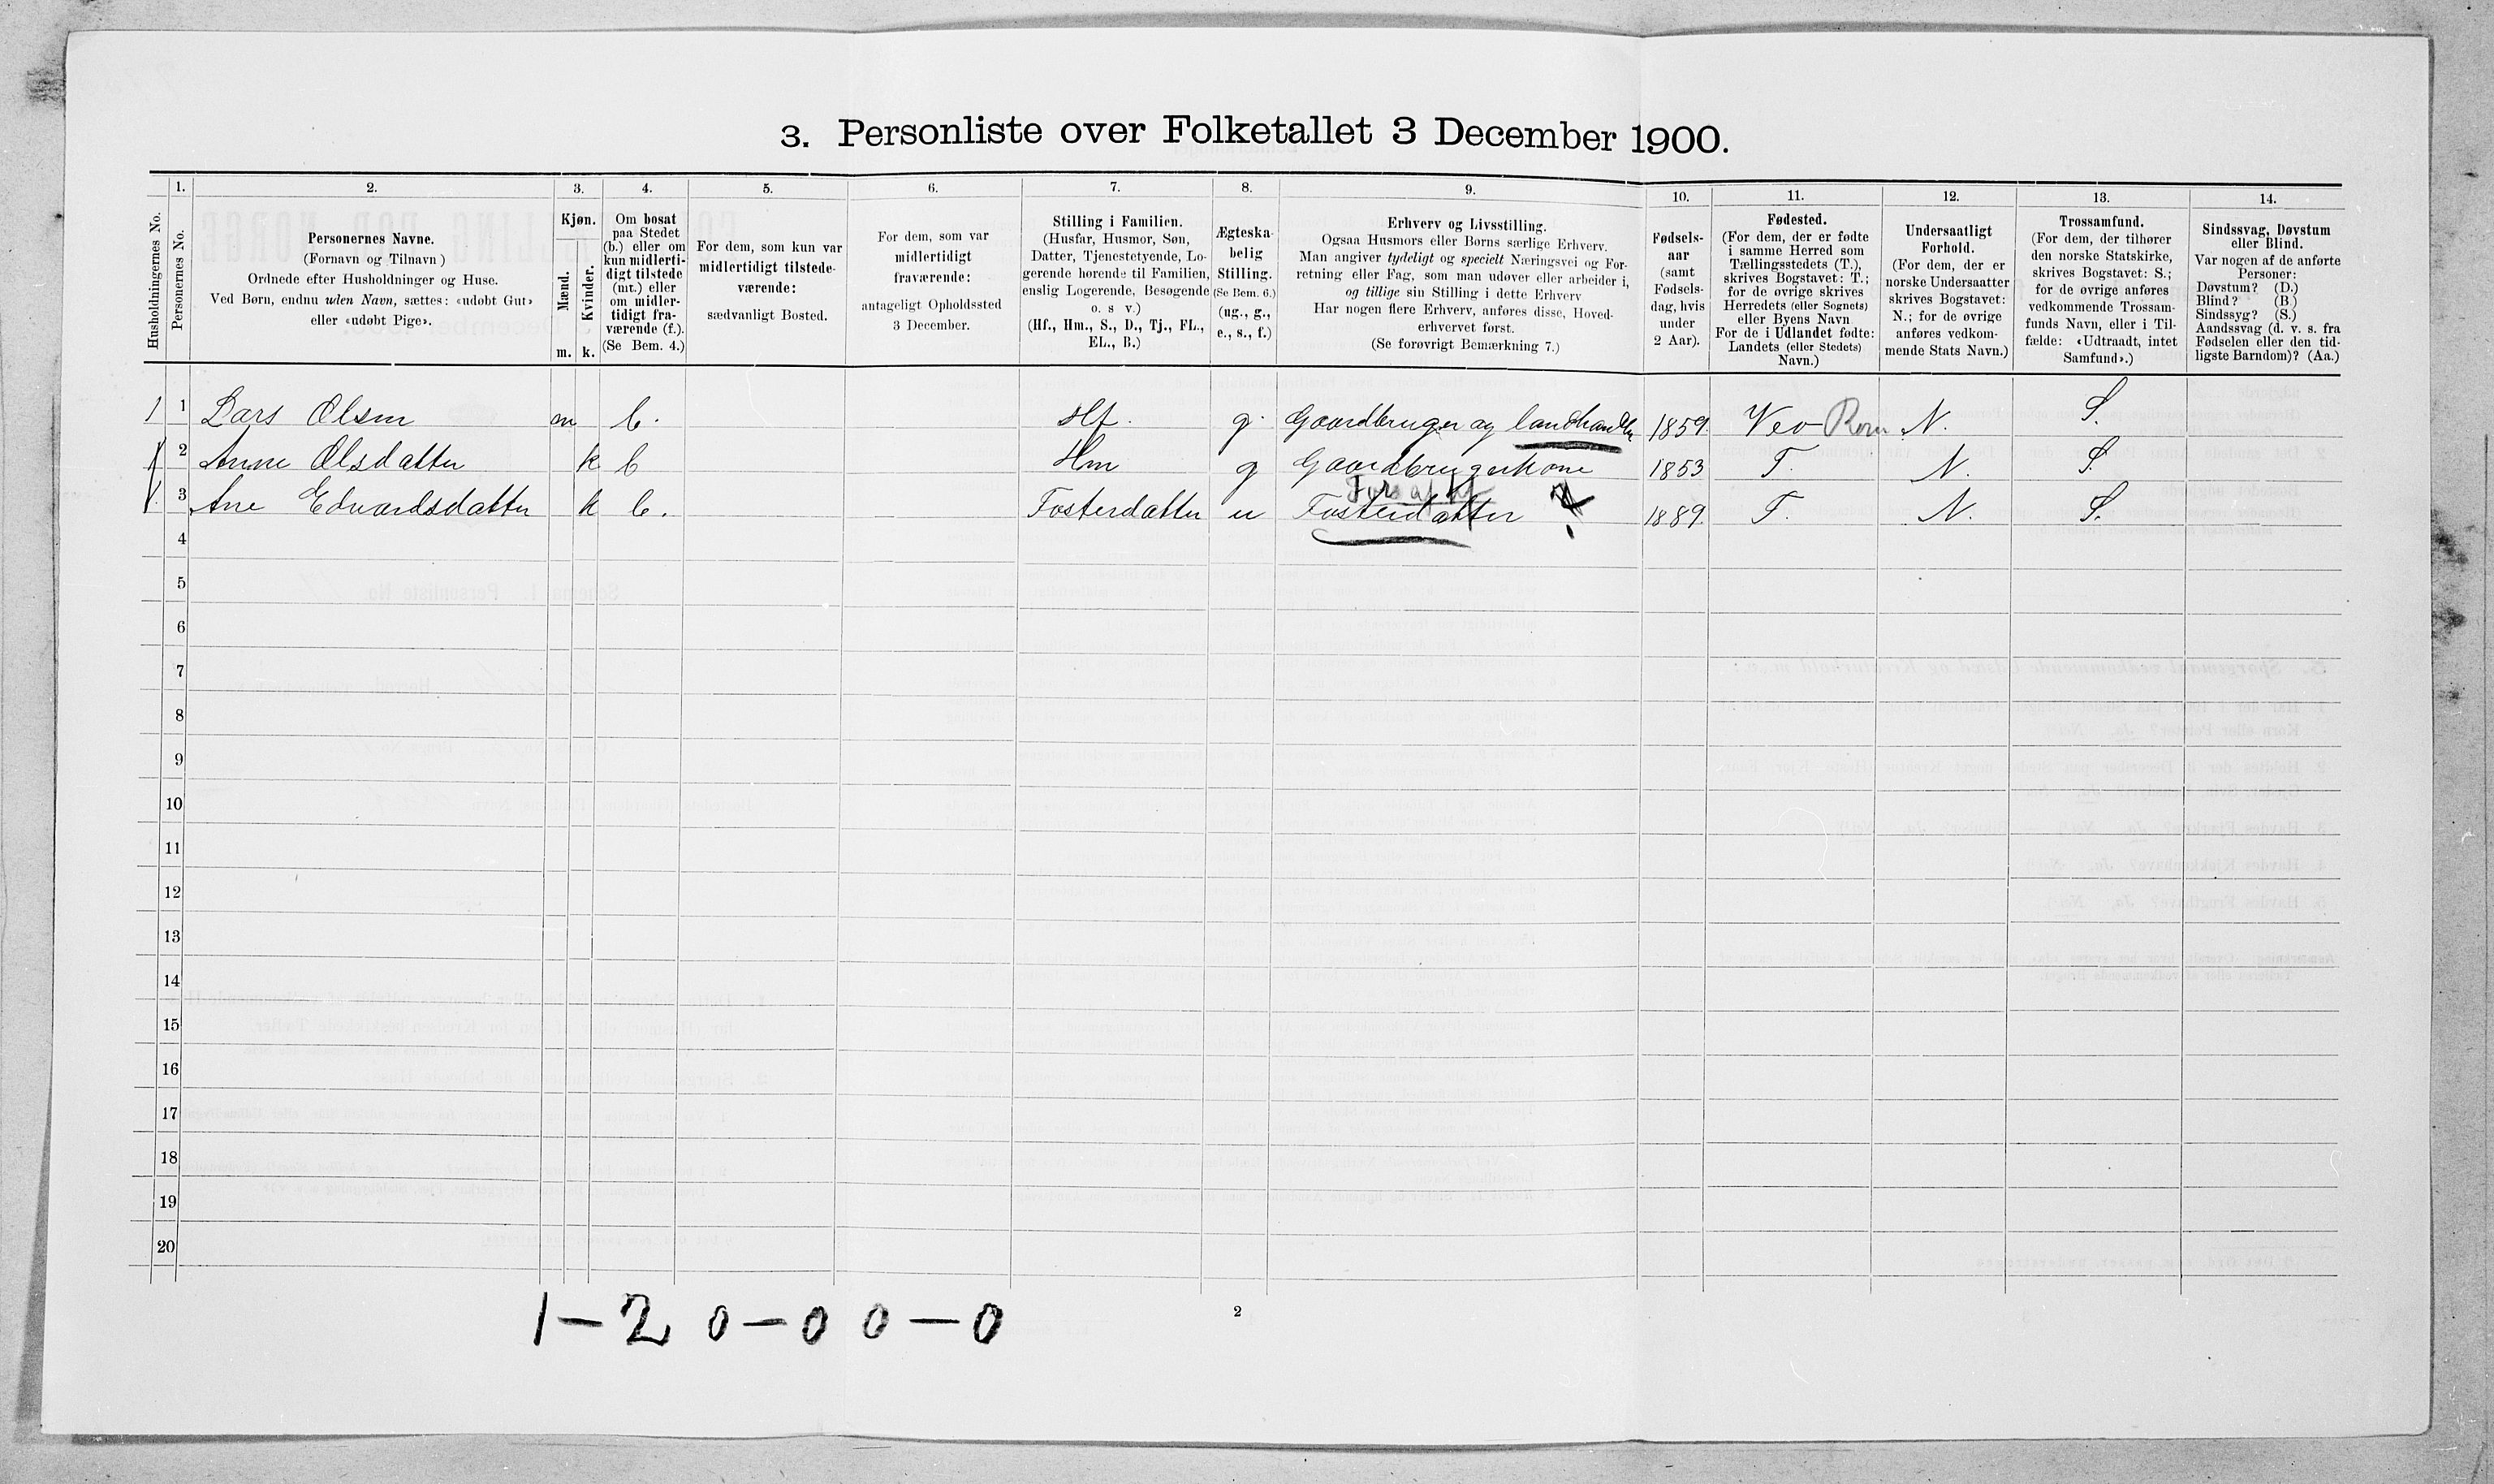 3. Personliste over Folketallet 3 December 1900.
1. 2. 3. 4. 5. 6. 7. 8. 9. 10. 11. 12. 13. 14.
Husholdningernes No.
Personernes No.
Personernes Navne.
(Fornavn og Tilnavn)
Ordnede efter Husholdninger og Huse.
Ved Børn, endnu uden Navn, sættes: «udøbt Gut»
eller «udøbt Pige».
Kjøn.
Mænd.
Kvinder.
m. k.
Om bosat
paa Stedet
(b.) eller om
kun midlerti-
digt tilstede
(mt.) eller
om midler-
tidigt fra-
værende (f.).
(Se Bem. 4.)
For dem, som kun var
midlertidigt tilstede-
værende:
sædvanligt Bosted.
For dem, som var
midlertidigt
fraværende:
antageligt Opholdssted
3 December.
Stilling i Familien.
(Husfar, Husmor, Søn,
Datter, Tjenestetyende, Lo-
gerende hørende til Familien,
enslig Logerende, Besøgende
o. s v.)
(Hf., Hm., S., D., Tj., FL.,
EL., B.)
Ægteska-
belig
Stilling.
(Se Bem. 6.)
(ug., g.,
e., s., f.)
Erhverv og Livsstilling.
Ogsaa Husmors eller Børns særlige Erhverv.
Man angiver tydeligt og specielt Næringsvei og For-
retning eller Fag, som man udøver eller arbeider i,
og tillige sin Stilling i dette Erhverv
Har nogen flere Erhverv, anføres disse, Hoved-
erhvervet først.
(Se forøvrigt Bemærkning 7.)
Fødsels-
aar
(samt
Fødsels-
dag, hvis
under
2 Aar).
Fødested.
(For dem, der er fødte
i samme Herred som
Tællingsstedets (T.),
skrives Bogstavet: T.;
for de øvrige skrives
Herredets (eller Sognets)
eller Byens Navn
For de i Udlandet fødte:
Landets (eller Stedets)
Navn.)
Undersaatligt
Forhold.
(For dem, der er
norske Undersaatter
skrives Bogstavet:
N.; for de øvrige
anføres vedkom-
mende Stats Navn.)
Trossamfund.
(For dem, der tilhører
den norske Statskirke,
skrives Bogstavet: S.;
for de øvrige anføres
vedkommende Trossam-
funds Navn, eller i Til-
fælde: «Udtraadt, intet
Samfund».)
Sindssvag, Døvstum
eller Blind.
Var nogen af de anførte
Personer:
Døvstum? (D.)
Blind? (B)
Sindssyg? (S.)
Aandssvag (d. v. s. fra
Fødselen eller den tid-
ligste Barndom)? (Aa.)
1 1 Lars Olsen m b. Hf. g. Gaardbruger og landhandler 1859. Veø Rom N. S.
2 Anne Olsdatter k b Hm g Gaardbrugerkone 1853 T. N. S.
Fors af Hf
3 Ane Edvardsdatter k b. Fosterdatter u Fosterdatter 1889. T. N. S.
4
5
6
7
8
9
10
11
12
13
14
15
16
17
18
19
20
1-2 0-0 0-0
2